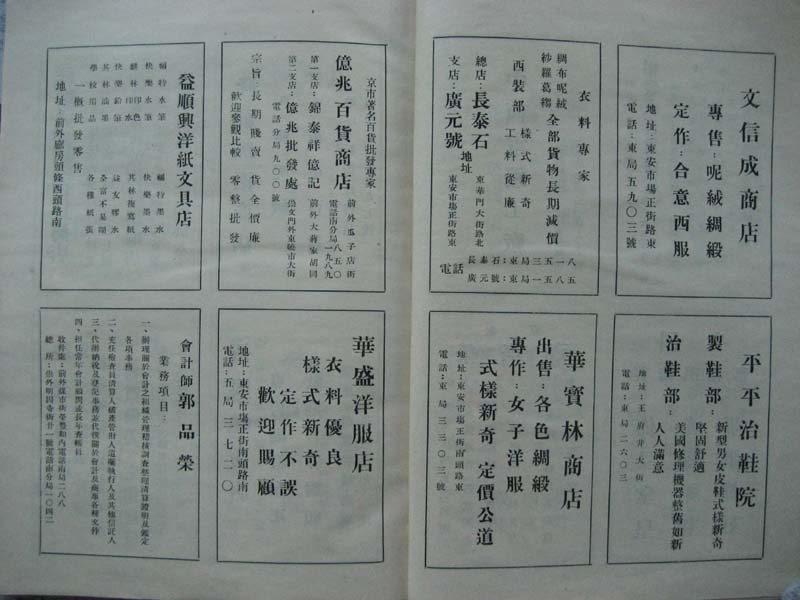 文信成商店
專售：呢絨綢緞
定作：合意西服
地址：東安市場正街路東
電話：東局五九〇三號
衣料專家
綢布呢絨
紗羅葛縐
全部貨物長期減價
西裝部
樣式新奇
工料從廉
總店：長泰石
地址
東華門大街路北
支店：廣元號
東安市場正街路東
電話
長泰石：東局三五八
廣元號：東局一一五五
平平治鞋院
製鞋部：
新型男女皮鞋式樣新奇
堅固舒適
治鞋部：
美國修理機器整舊如新
人人滿意
地址：王府井大街
電話：東局二六〇三
華寶林商店
出售：各色綢緞
專作：女子洋服
式樣新奇 定價公道
地址：東安市場正街南頭路東
電話：東局三三〇三號
京市著名百貨批發專家
億兆百貨商店
前外瓜子店街
電話南分局
一八九五八〇九
第一支店：錦泰祥億記
前外大蔣家胡同
第二支店：億兆批發處
崇文門外東曉市大街
電話分局九〇〇號
宗旨：長期賤賣 貨全價廉
歡迎參觀比較 零整批發
益順興洋紙文具店
福特水筆 福特墨水
快樂水筆 快樂墨水
鋼林印色水 其林複寫紙
快樂鉛筆 益友膠水
其林油墨 金富不易糊
學校用品 各種紙張
一概批發零售
地址：前外廊房頭條西頭路南
華盛洋服店
衣料優良
樣式新奇
定作不誤
歡迎賜顧
地址：東安市場正街南頭路南
電話：五局三七二〇
會計師郭品榮
業務項目：
一、辦理關於會計之組織管理稽核調查整理清算證明及鑑定
各項事務
二、充任檢查員清算人破產管財人遺囑執行人及其他信託人
三、代辦納稅及登記事務並代撰關於會計及商事各種文件
四、担任常年會計顧問或長年查帳員
收件處：前外煤市街榮豐和內電話南局二八八
總 所：崇外明因寺街廿一號電話南分局一〇四二